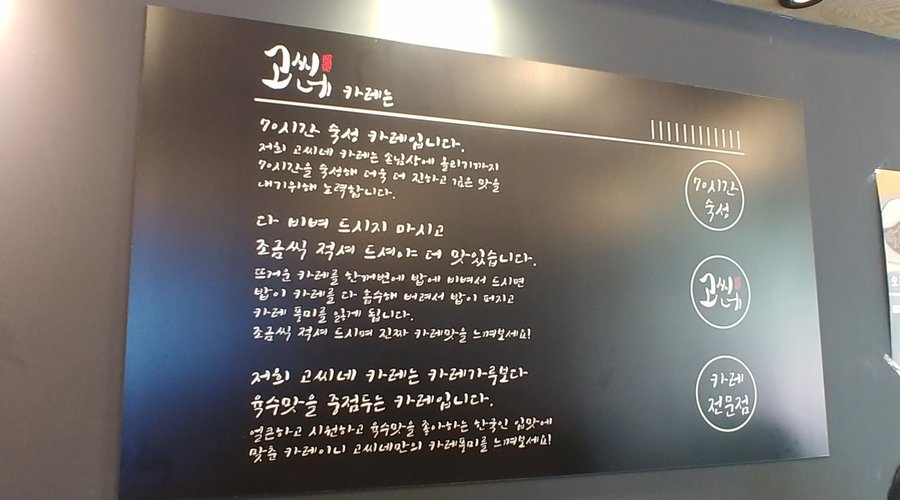 고씨네 카레는
70시간 숙성 카레입니다.
저희 고씨네 카레는 손님상에 올리기까지
70시간을 숙성해 더욱 더 진하고 깊은 맛을
내기위해 노력합니다.
다 비벼 드시지 마시고
조금씩 적셔 드셔야 더 맛있습니다.
뜨거운 카레를 한꺼번에 밥에 비벼서 드시면
밥이 카레를 다 흡수해 버려서 밥이 퍼지고
카레 풍미를 잃게 됩니다.
조금씩 적셔 드시며 진짜 카레맛을 느껴보세요!
저희 고씨네 카레는 카레가루보다
육수맛을 주점두는 카레입니다.
얼큰하고 시원하고 육수맛을 좋아하는 한국인 입맛에
맞춘 카레이니 고씨네만의 카레풍미를 느껴보세요!
70시간
숙성
고씨네
카레
전문점